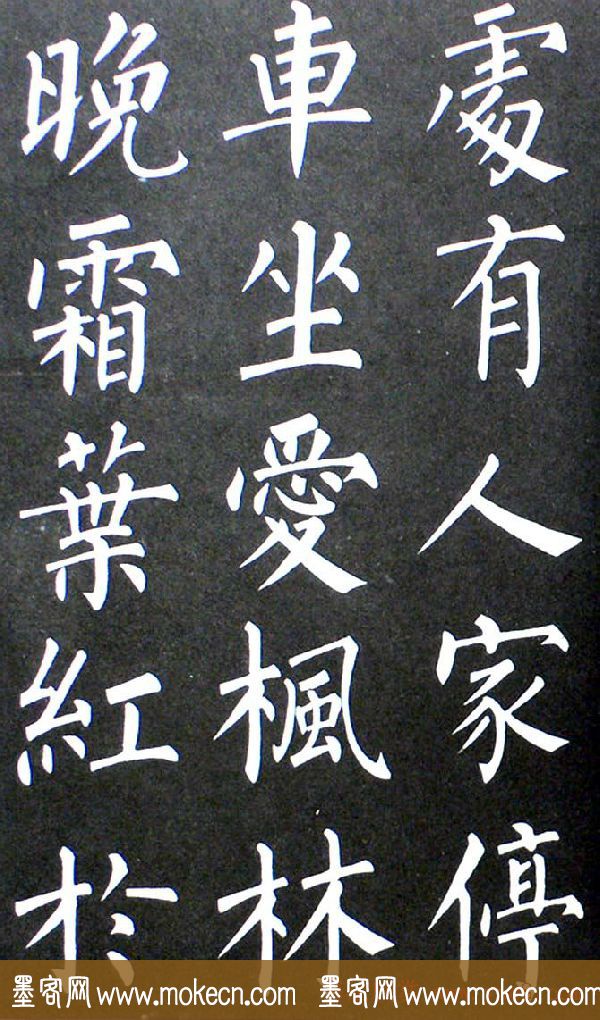 處有人家停
車坐愛楓林
晚霜葉紅於
墨客网 www.mokecn.com 墨客网 www.mokecn.com